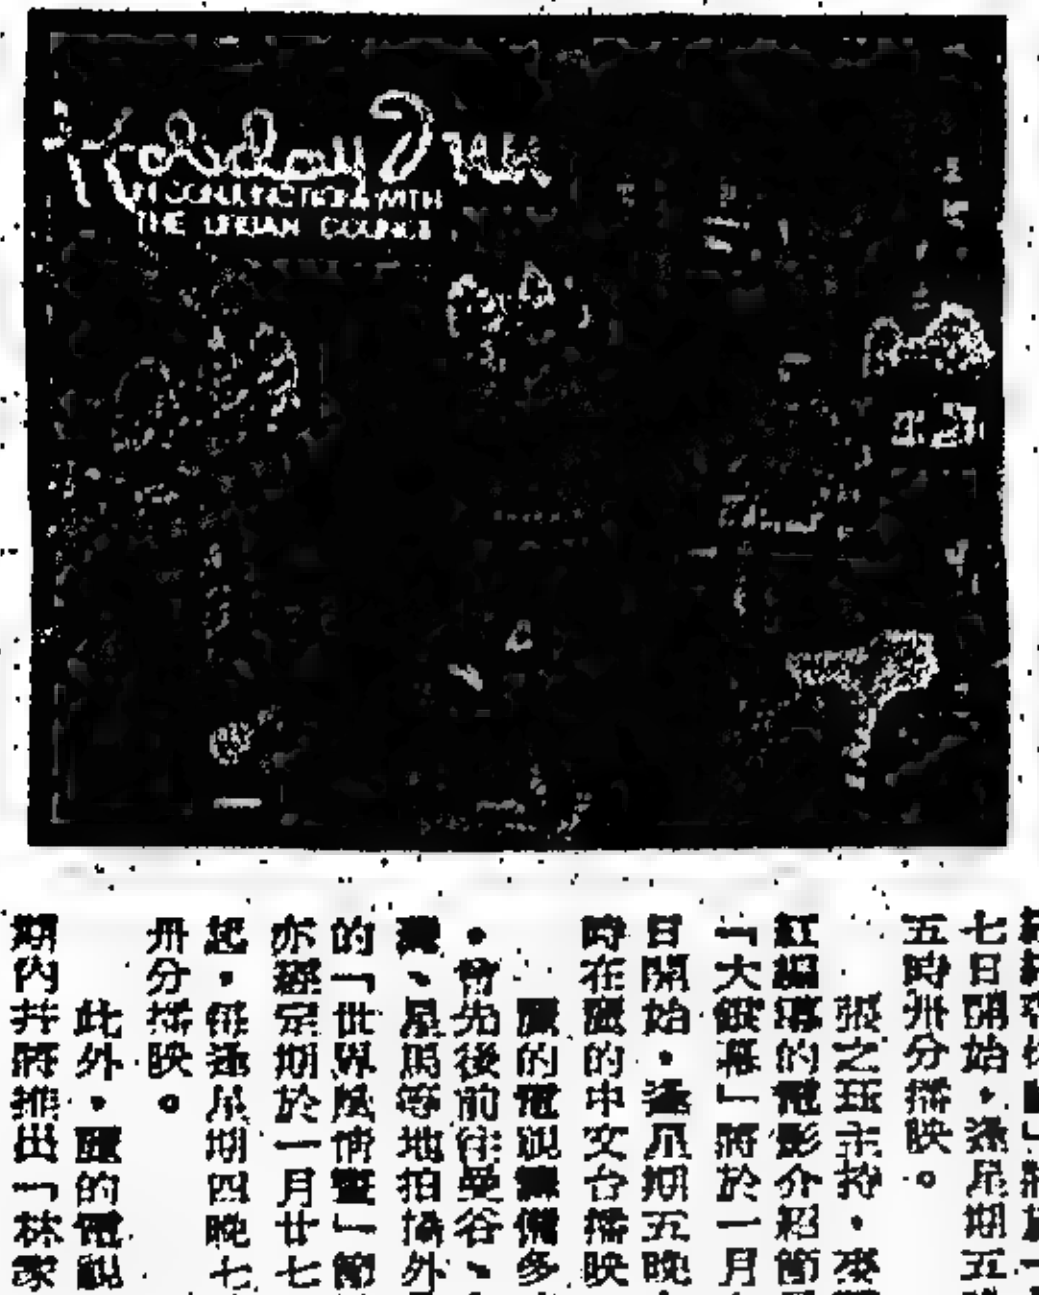 Holiday Inn
IN CONJUNCTION WITH
THE URBAN COUNCIL
七日開始，逢星期五
五時卅分播映。
張之珏主持，
紅編導的電影介紹節
「大銀幕」將於一月
日開始，逢星期五晚
時在麗的中文台播映
麗的電視籌備多
，曾先後前往曼谷、
灣、星馬等地拍攝外
的「世界風情畫」節
亦經定期於一月廿七
起，每逢星期四晚七
卅分播映。
此外，麗的電視
期內并將推出「林家